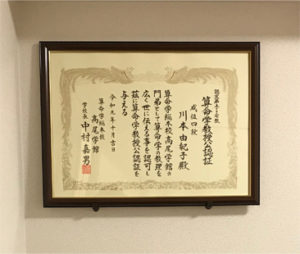 算命学教授公認証
川本由紀子殿
算命学総本校高尾学館の
門弟として算命学の教理を
広く世に伝える事を認可し
茲に算命学教授公認証を
与える
令和元年十月吉日
算命学総本校
高尾学館
学校長 中村嘉男